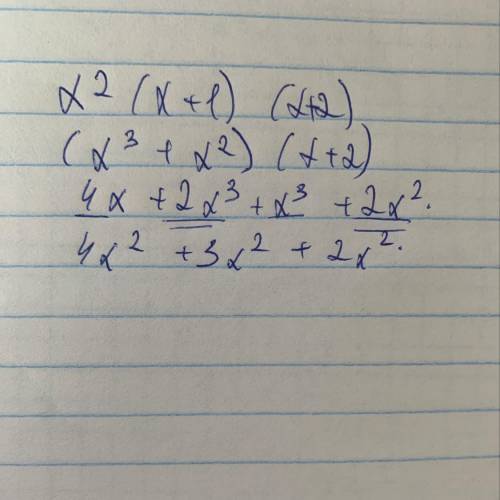 x² (x+1) (x+2)
(x³ + x²) (x+2)
4x + 2x³ + x³ + 2x².
4x² + 3x² + 2x².